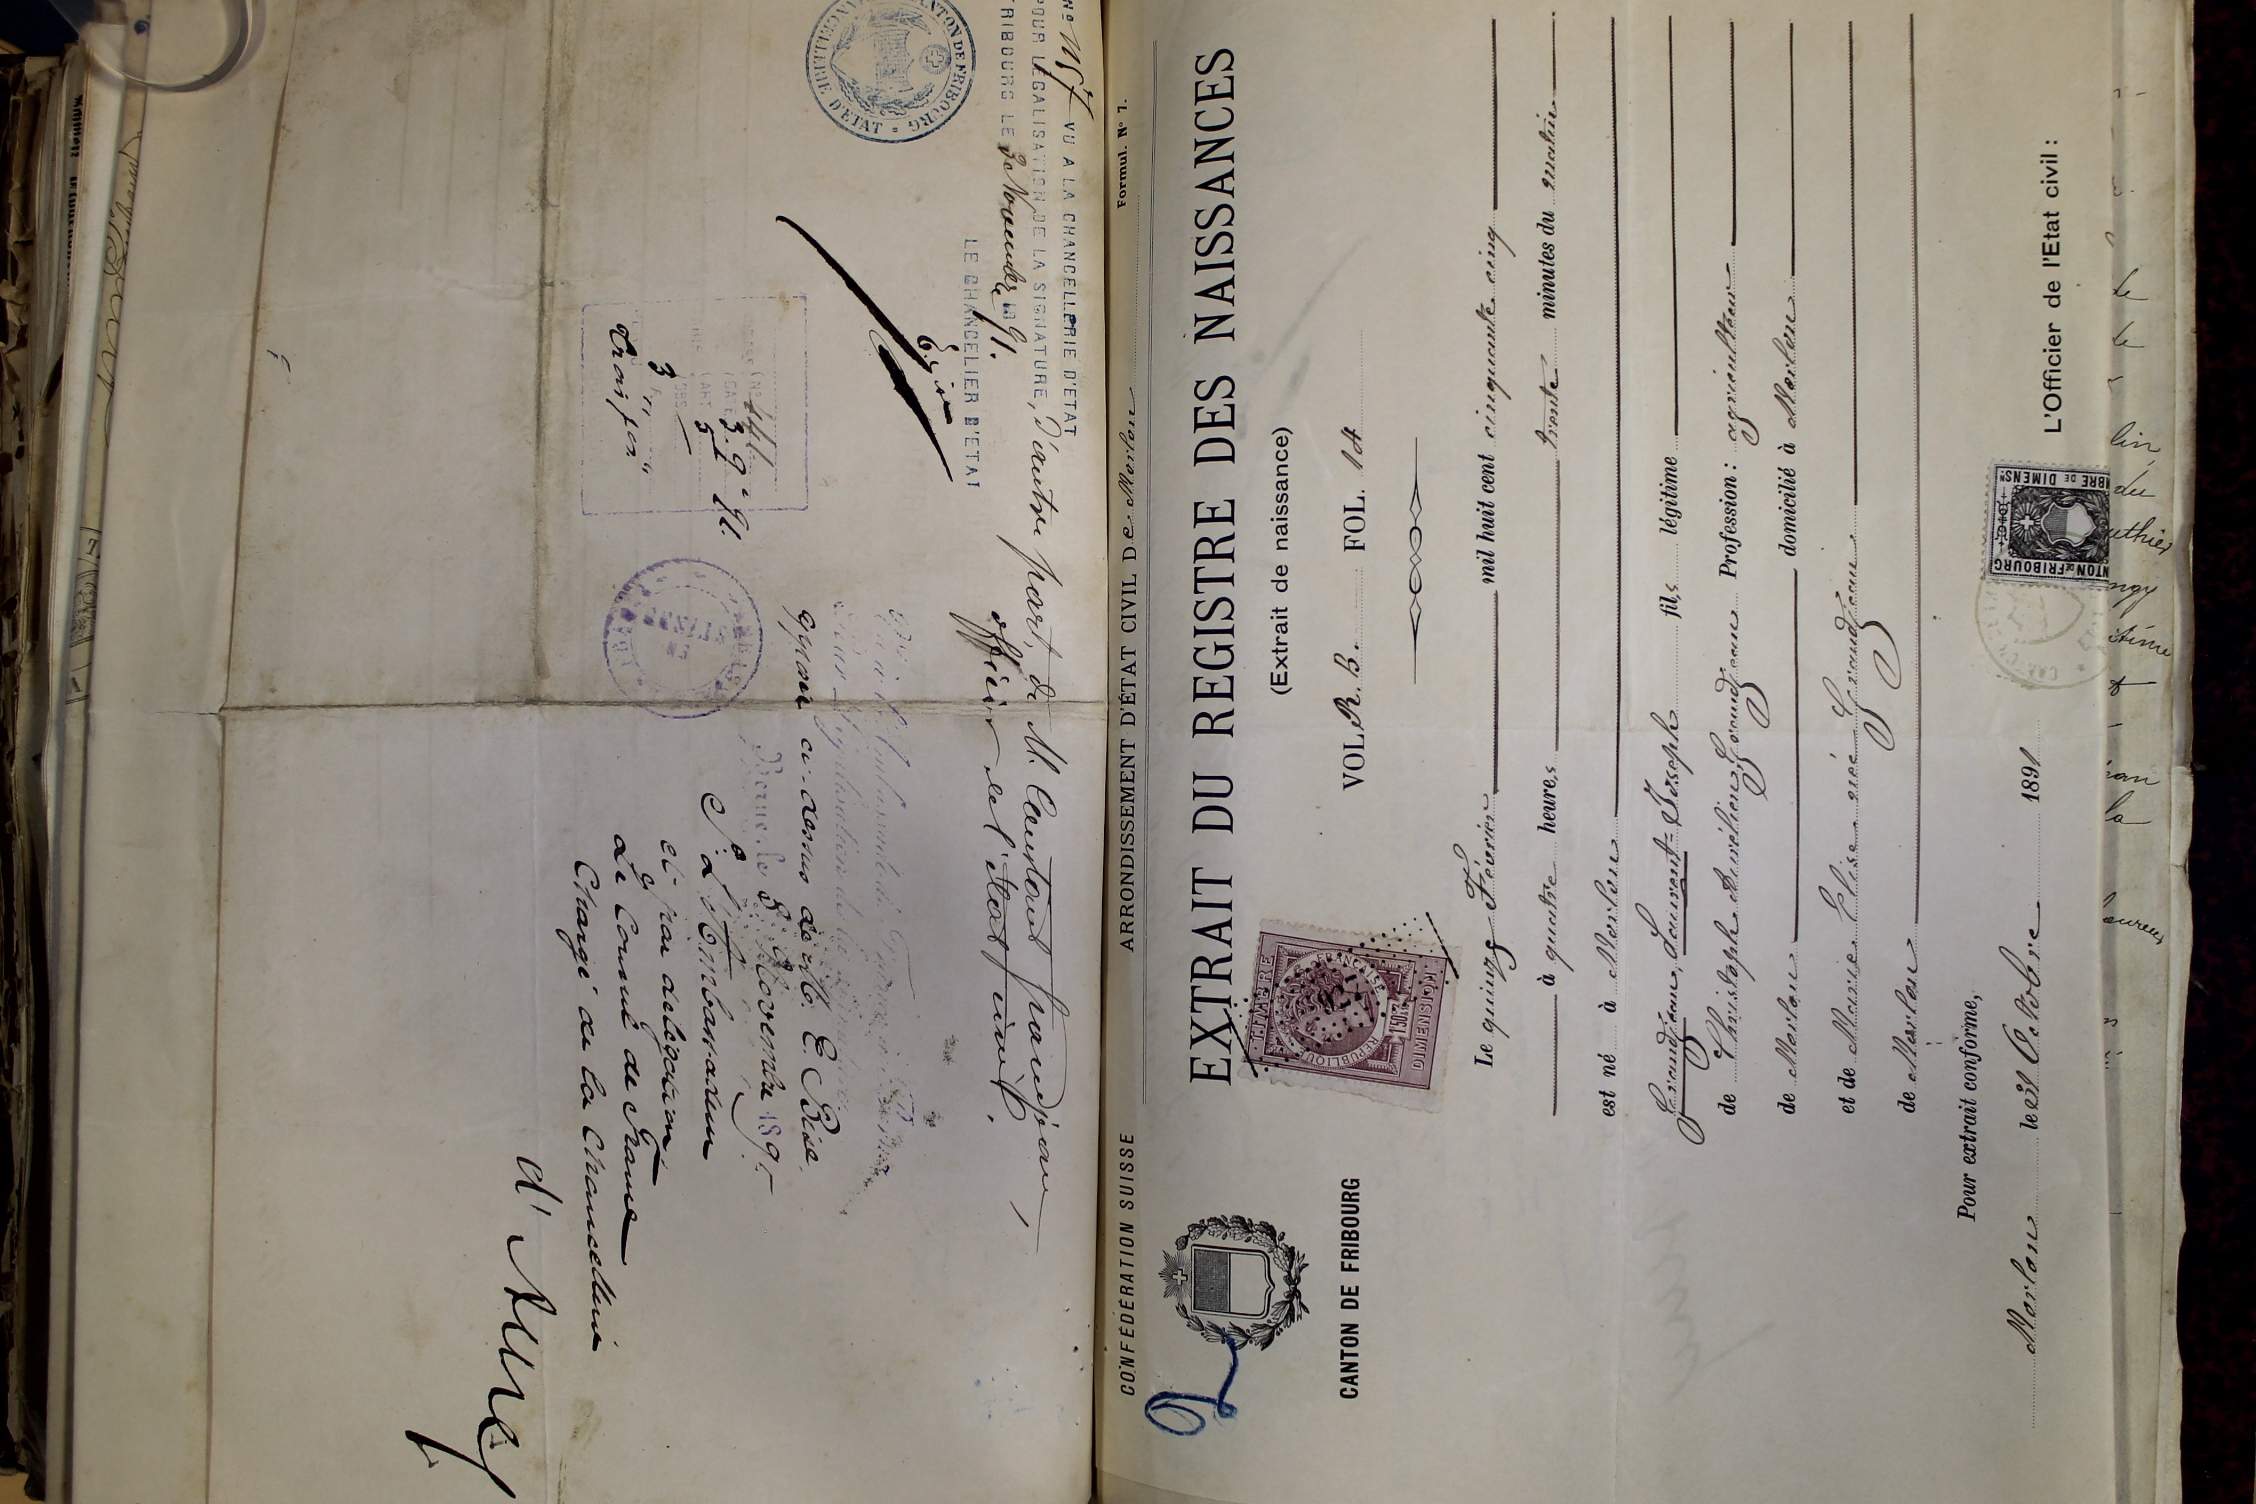 Nº 1157 VU A LA CHANCELLERIE D'ETAT
POUR LÉGALISATION DE LA SIGNATURE, d'autre part, de M. Constant Grandjean,
FRIBOURG LE 3 Novembre 1891. officier de l'état civil.
LE CHANCELIER D'ETAT
E. Bise
CANTON DE FRIBOURG
CHANCELLERIE D'ETAT
Vu à l'Ambassade de France à Berne
pour légalisation de la signature
apposée ci-dessus de M. E. Bise.
Berne, le 8 Novembre 1891
Pr. l'Ambassadeur
et par délégation,
Le Consul de France
Chargé de la Chancellerie
d'
141
3.9.91.
ART 5
3 "
trois frs
CONFÉDÉRATION SUISSE
ARRONDISSEMENT D'ÉTAT CIVIL De Morlon
Formul. Nº 1.
2
CANTON DE FRIBOURG
EXTRAIT DU REGISTRE DES NAISSANCES
(Extrait de naissance)
VOL. R. B. FOL. 14
TIMBRE
REPUBLIQUE FRANÇAISE
1F50
DIMENSION
Le quinze Février mil huit cent cinquante cinq
à quatre heures trente minutes du matin
est né à Morlon
Grandjean, Laurent-Joseph fils légitime
de Christophe Aurélien Grandjean Profession: agriculteur
de Morlon domicilié à Morlon
et de Marie Elise née Grandjean
de Morlon
Pour extrait conforme,
Morlon le 31 Octobre 1891
L'Officier de l'Etat civil:
CANTON DE FRIBOURG
TIMBRE DE DIMENSN
de
le
lin
du
la